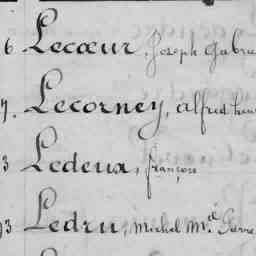 6 Lecœur, Joseph Gabri
7. Lecorney, alfred
3 Ledeux, françois
3 Ledru, Michel Md. Pierre